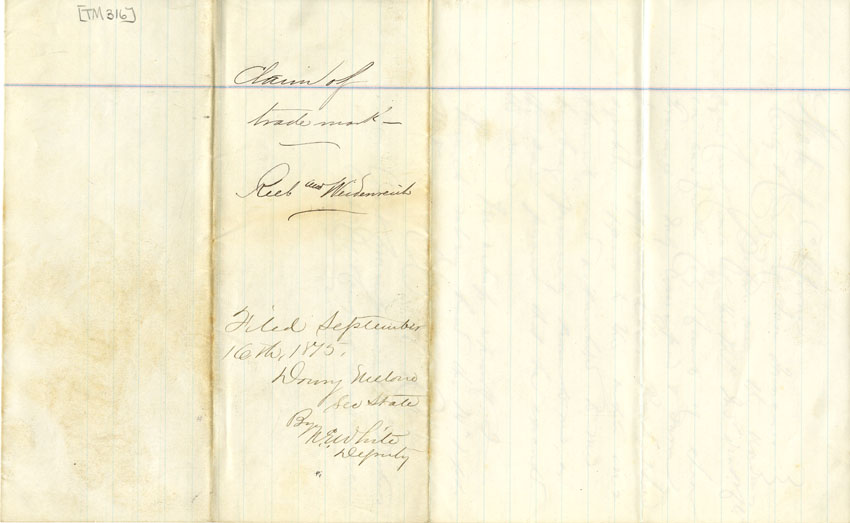 [TM 316]
Claim of
trade mark —
Reeb and Weidenreich
Filed September
16th, 1875.
Drury Melone
Sec State
By
White
Deputy